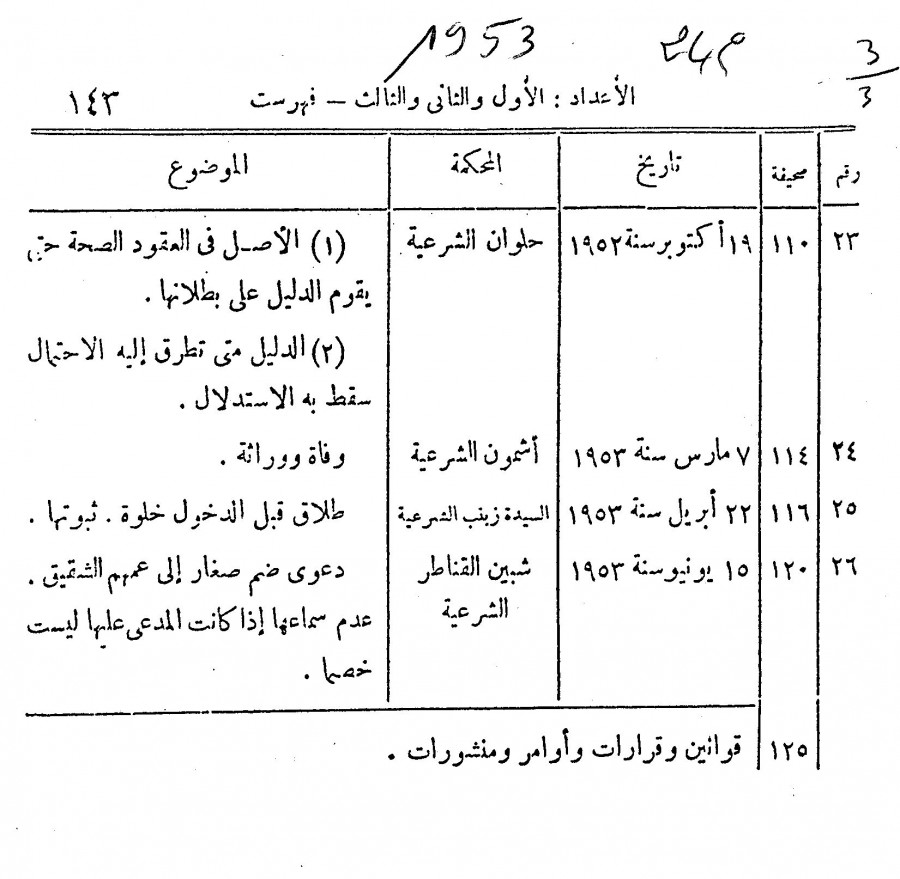 1953 24م 3/3
الأعداد : الأول والثانى والثالث — فهرست ١٤٣
رقم صحيفة تاريخ المحكمة الموضوع
٢٣ ١١٠ ١٩ أكتوبر سنة ١٩٥٢ حلوان الشرعية (١) الأصل فى العقود الصحة حتى
يقوم الدليل على بطلانها .
(٢) الدليل متى تطرق إليه الاحتمال
سقط به الاستدلال .
٢٤ ١١٤ ٧ مارس سنة ١٩٥٣ أشمون الشرعية وفاة ووراثة .
٢٥ ١١٦ ٢٢ أبريل سنة ١٩٥٣ السيدة زينب الشرعية طلاق قبل الدخول خلوة . ثبوتها .
٢٦ ١٢٠ ١٥ يونيو سنة ١٩٥٣ شبين القناطر دعوى ضم صغار إلى عمهم الشقيق .
الشرعية عدم سماعها إذا كانت المدعى عليها ليست
خصما .
١٢٥ قوانين وقرارات وأوامر ومنشورات .